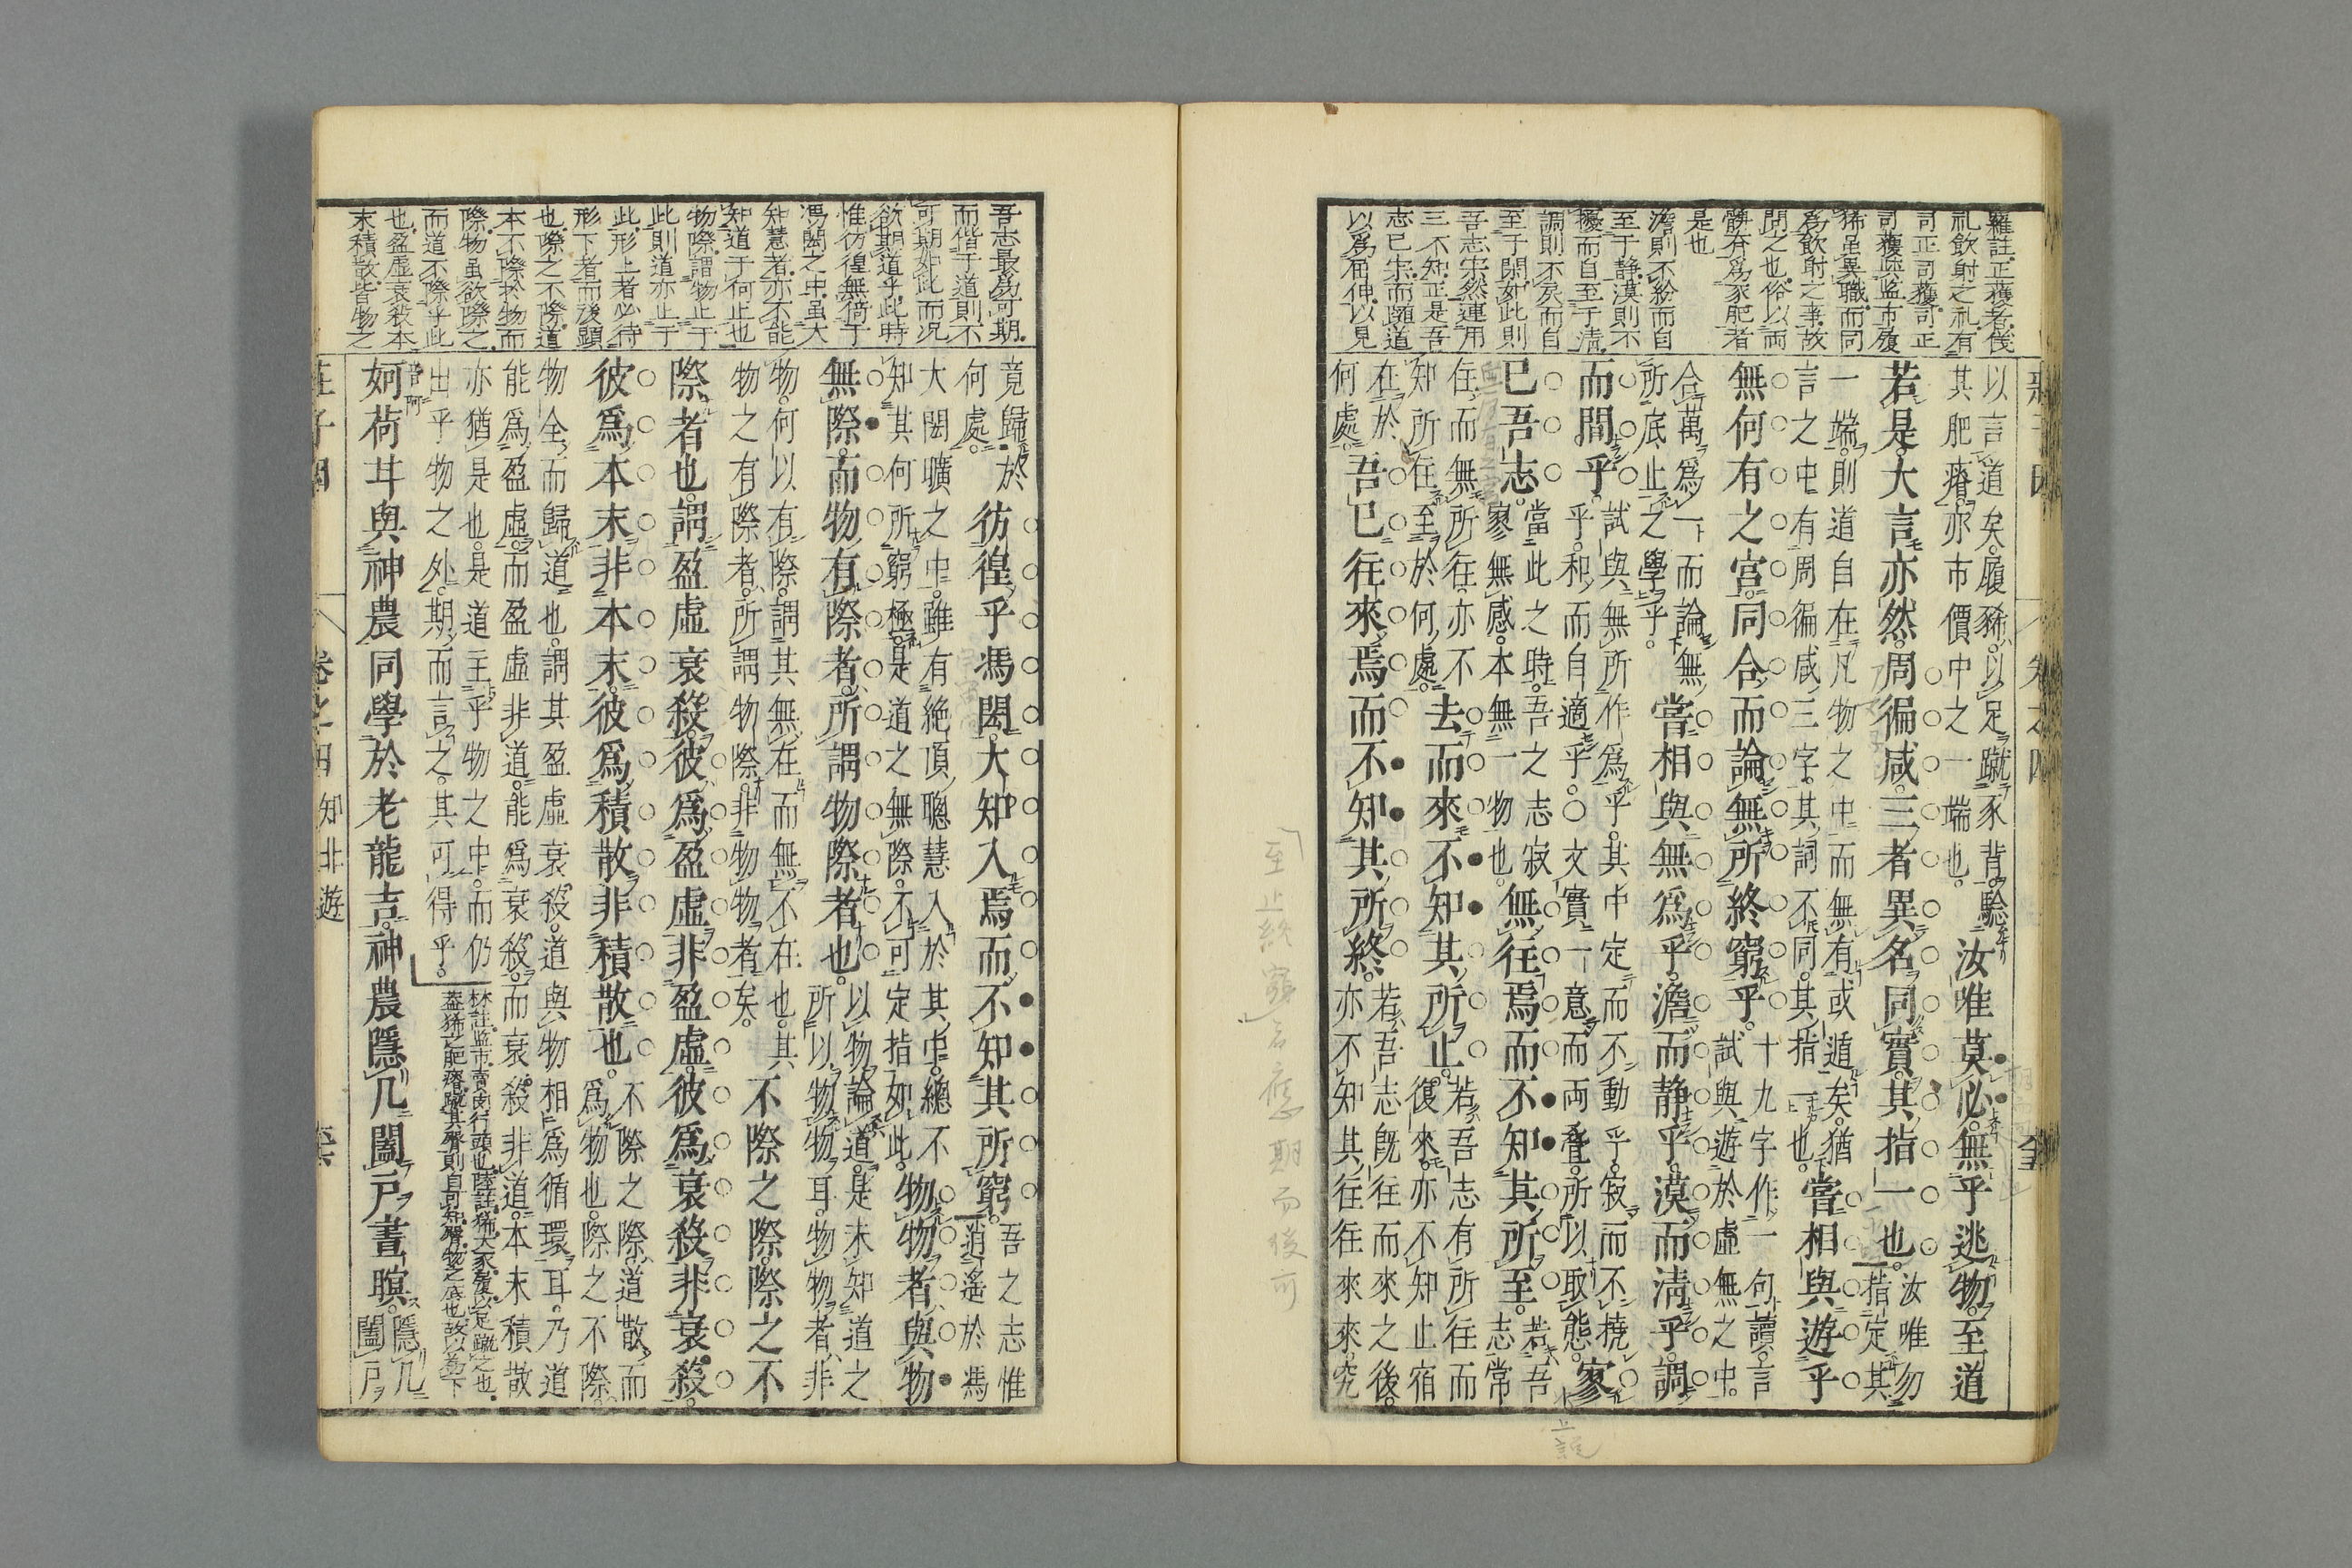 羅註正獲者儀
礼飲射之礼有
司正司獲司正
司獲與監市履
狶虽異職而同
爲飲射之事故
問之也俗以両
髀夯爲豕肥者
是也
澹則不紛而自
至于静漠則不
擾而自至于清
調則不戾而自
至于閒如此則
吾志宗然運用
三不知正是吾
志已宗而隨道
以爲屈伸以見
以言道矣履豨以足蹴豕背驗
其肥瘠亦市價中之一端也
汝唯莫必無乎逃物至道
若是大言亦然周徧咸三者異名同實其指一也
汝唯勿
指定其
一端則道自在凡物之中而無有或遁矣猶
言之中有周徧咸三字其詞不同其指一也
嘗相與遊乎
無何有之宮同合而論無所終窮乎
十九字作一句讀言
試與遊於虛無之中
合萬爲一而論無
所底止之學乎
嘗相與無爲乎澹而静乎漠而淸乎調
而間乎
試與無所作爲乎其中定而不動乎寂而不撓
乎和而自適乎○文實一意而両疊所以取態
寥
已吾志
當此之時吾之志寂
寥無感本無一物也
無往焉而不知其所至
若吾
志常
在而無所往亦不
知所在至於何處
去而來不知其所止
若吾志有所往而
復來亦不知止宿
在於
何處
吾已往來焉而不知其所終
若吾志既往而來之後
亦不知其往往來來究
知北遊
吾志最爲可期
而偕于道則不
可期如此而况
欲期道乎此時
惟彷徨無倚于
馮閎之中虽大
知慧者亦不能
知道于何止也
物際謂物止于
此則道亦止于
此形上者必待
形下者而後顕
也際之不際道
本不際於物而
際物虽欲際之
而道不際乎此
也盈虛衰殺本
末積散皆物之
竟歸於
何處
彷徨乎馮閎大知入焉而不知其所窮
吾之志惟
逍遙於馮
大閎曠之中雖有絶頂聰慧入於其中總不
知其何所窮極是道之無際不可定指如此
物物者與物
無際而物有際者所謂物際者也
以物論道是未知道之
所以物物耳物物者非
物何以有際謂其無在而無不在也其
物之有際者所謂物際非物物者矣
不際之際際之不
際者也謂盈虛衰殺彼爲盈虛非盈虛彼爲衰殺非衰殺
彼爲本末非本末彼爲積散非積散也
不際之際道散而
爲物也際之不際
物全而歸道也謂其盈虛衰殺道與物相爲循環耳乃道
能爲盈虛而盈虛非道能爲衰殺而衰殺非道本末積散
亦猶是也是道主乎物之中而仍
出乎物之外期而言之其可得乎
林註監市賣肉行頭也陸註狶大豕履以足蹴之也
妸荷甘與神農同學於老龍吉神農隱几闔戶晝瞑
隱几
闔戶
莊子因
卷之四
知北遊